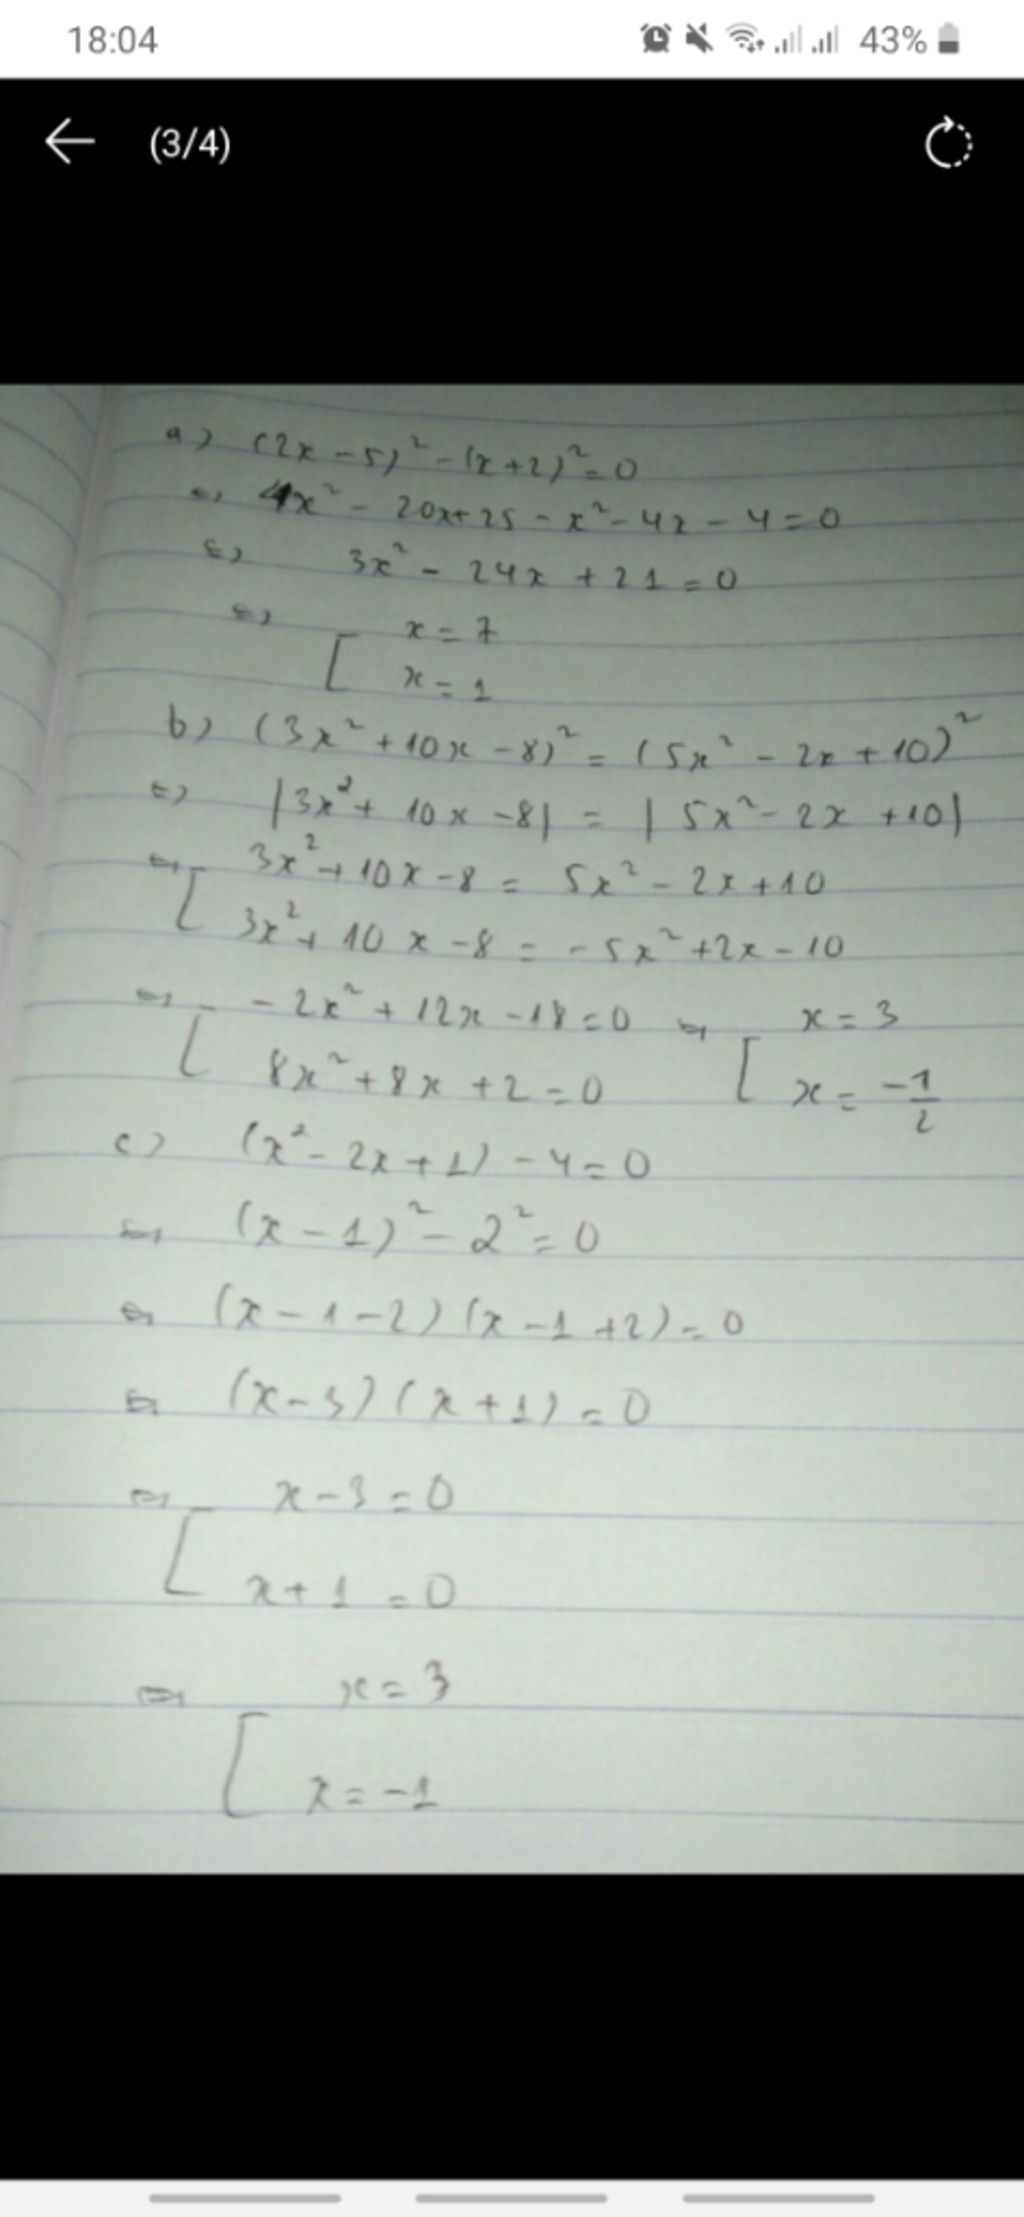 18:04 43%
(3/4)
a) (2x - 5)² - (x + 2)² = 0
⇔ 4x² - 20x + 25 - x² - 4x - 4 = 0
⇔ 3x² - 24x + 21 = 0
⇔ [ x = 7
x = 1
b) (3x² + 10x - 8)² = (5x² - 2x + 10)²
⇔ |3x² + 10x - 8| = |5x² - 2x + 10|
⇔ [ 3x² + 10x - 8 = 5x² - 2x + 10
3x² + 10x - 8 = -5x² + 2x - 10
⇔ [ -2x² + 12x - 18 = 0 ⇔ [ x = 3
8x² + 8x + 2 = 0 x = -1/2
c) (x² - 2x + 1) - 4 = 0
⇔ (x - 1)² - 2² = 0
⇔ (x - 1 - 2)(x - 1 + 2) = 0
⇔ (x - 3)(x + 1) = 0
⇔ [ x - 3 = 0
x + 1 = 0
⇔ [ x = 3
x = -1